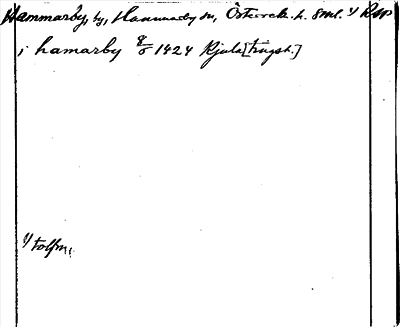 Hammarby, by, Hammarby sn, Österrek. h. Sml. 1) Rsp
i hamarby 8/6 1424 Kjula [tingsh.]
1) tolfm.